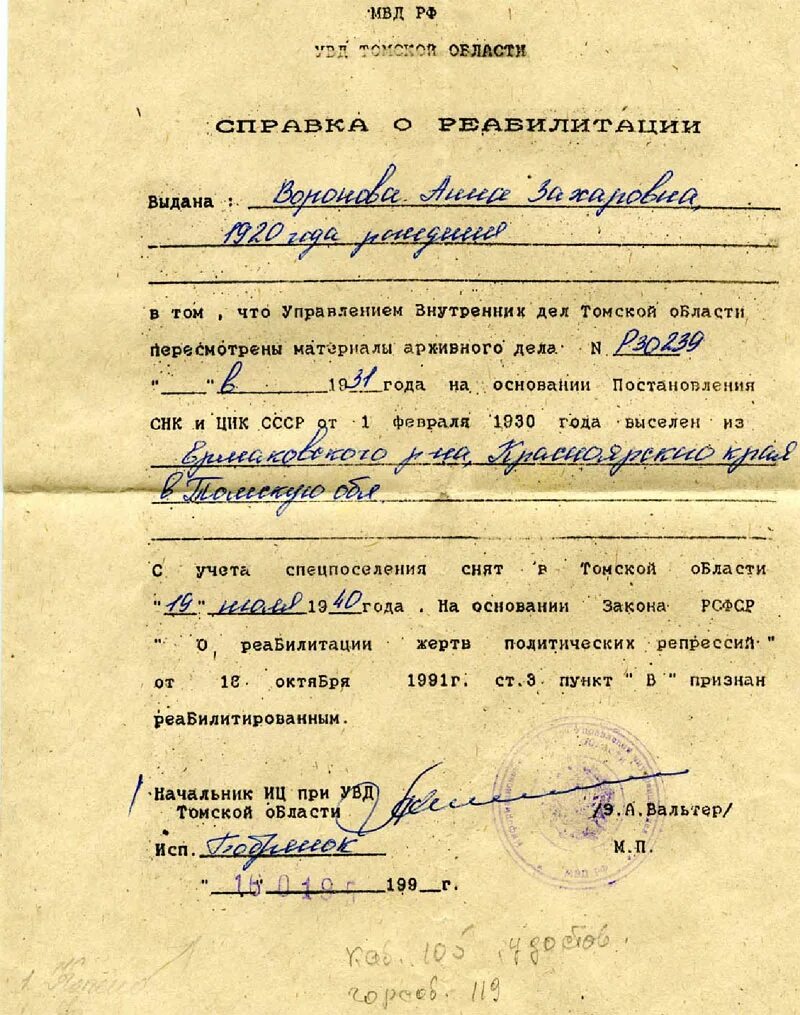 МВД РФ
УВД ТОМСКОЙ ОБЛАСТИ
СПРАВКА О РЕАБИЛИТАЦИИ
Выдана : Воронова Анна Захаровна,
1920 года рождения
в том , что Управлением Внутренник дел Томской области
пересмотрены материалы архивного дела N Р30239
"___" в 1931 года на основании Постановления
СНК и ЦИК СССР от 1 февраля 1930 года выселен из
Ермаковского р-на, Красноярского края
в Томскую обл
С учета спецпоселения снят в Томской области
"19" июля 1940 года . На основании Закона РСФСР
" О реабилитации жертв политических репрессий "
от 18 октября 1991г. ст.3 пункт " В " признан
реабилитированным.
Начальник ИЦ при УВД
Томской области /Э.А.Вальтер/
Исп. М.П.
199__г.
МВД РФ
каб. 105 удостов.
горсов. 119